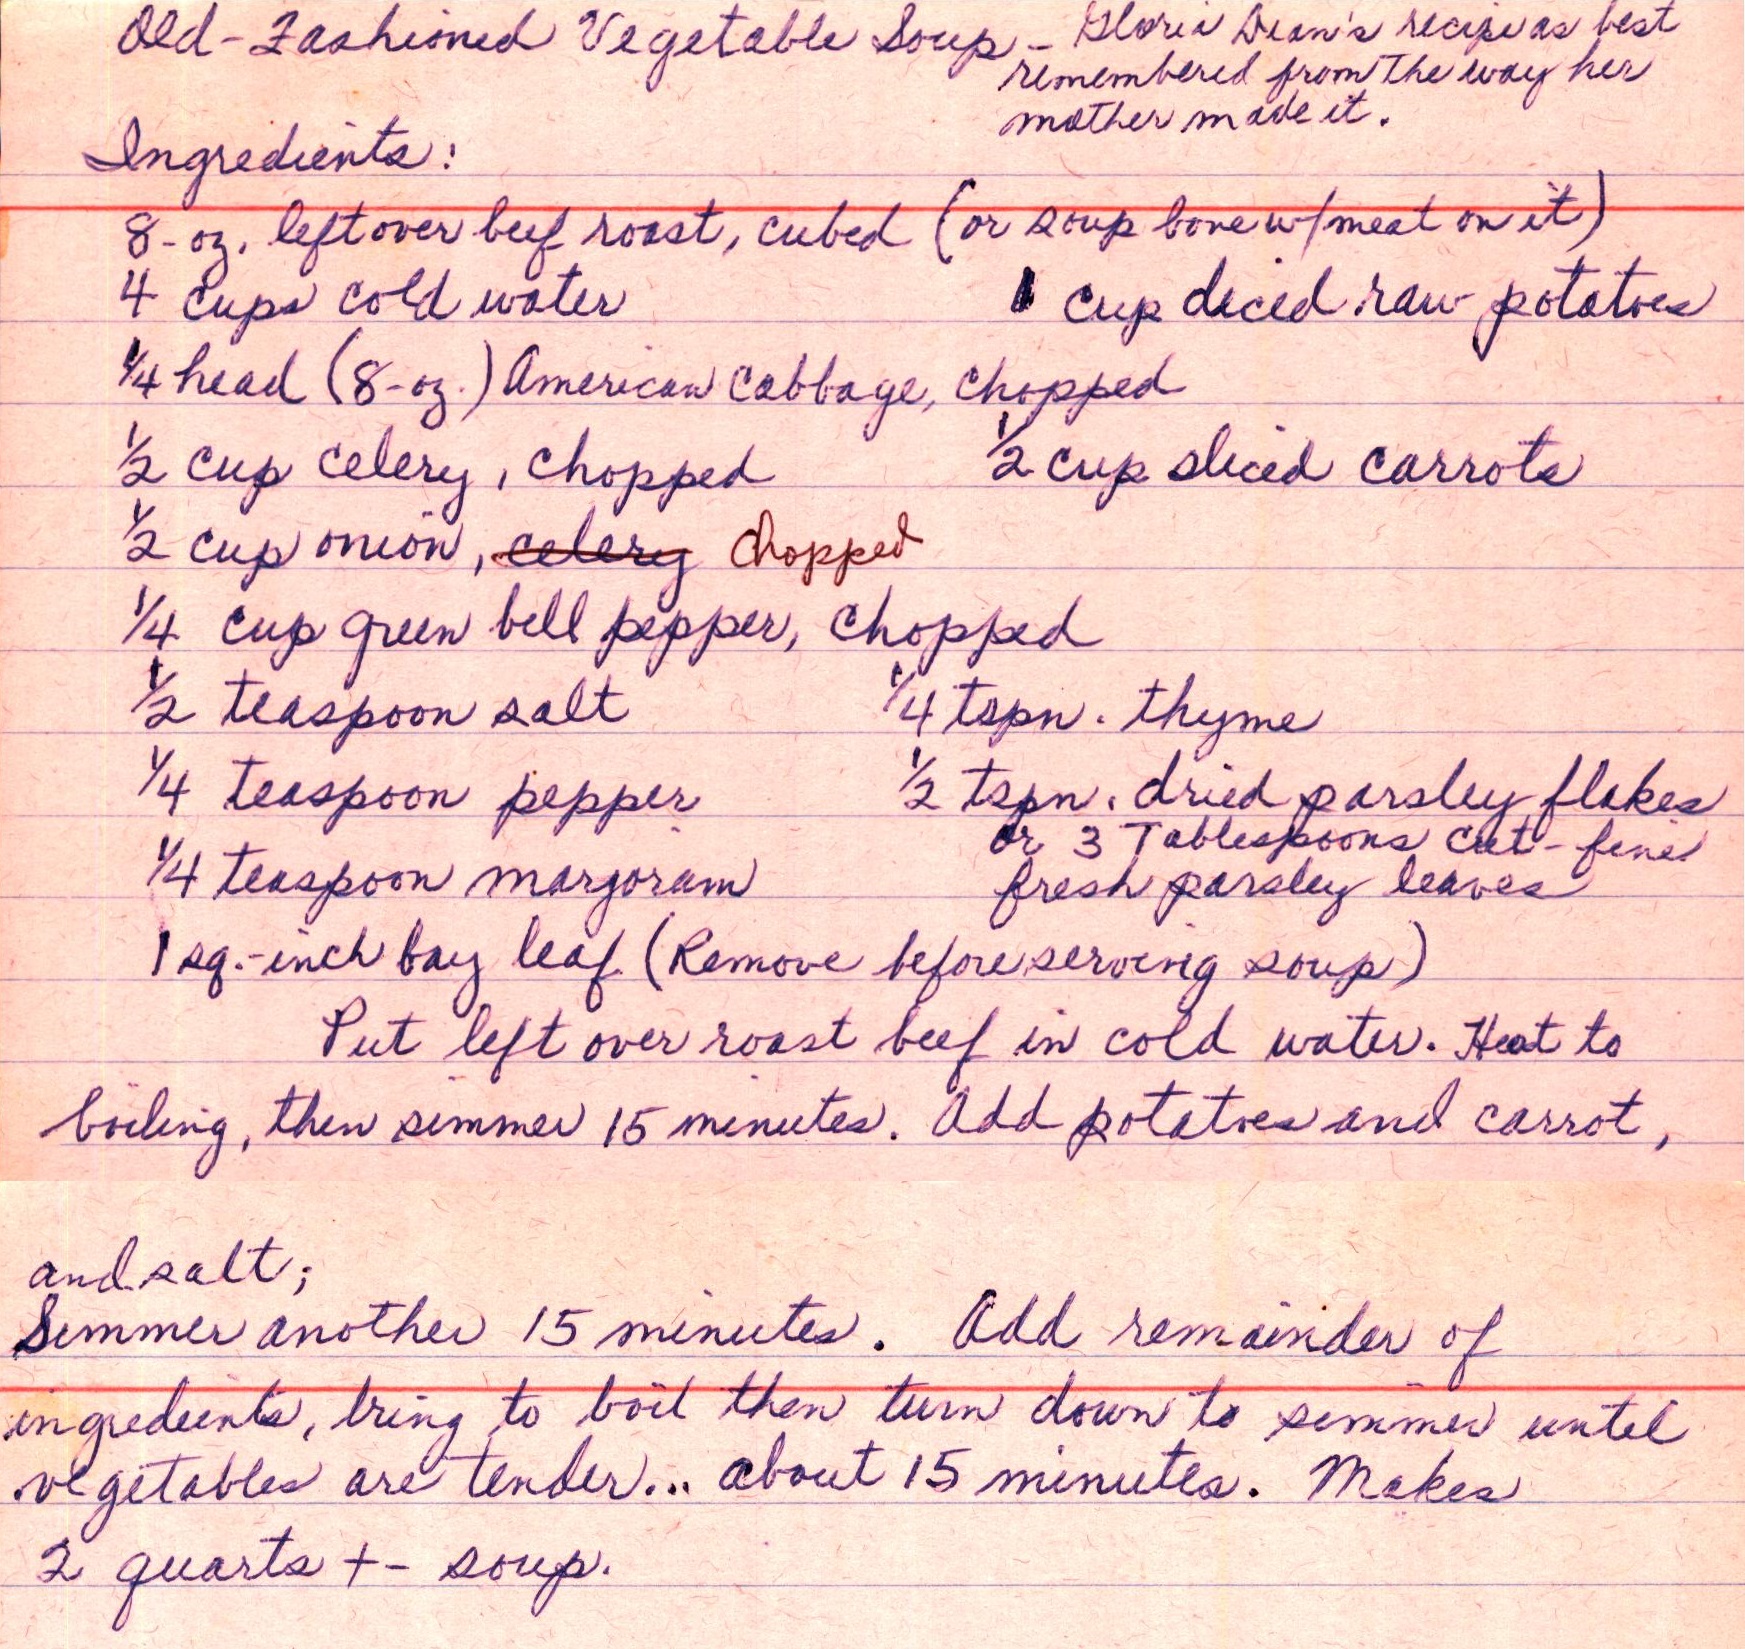 Old-Fashioned Vegetable Soup - Gloria Dean's recipe as best
remembered from the way her
mother made it.
Ingredients:
8-oz. leftover beef roast, cubed (or soup bone w/meat on it)
4 cups cold water 1 cup diced raw potatoes
1/4 head (8-oz.) American cabbage, chopped
1/2 cup celery, chopped 1/2 cup sliced carrots
1/2 cup onion, celery chopped
1/4 cup green bell pepper, chopped
1/2 teaspoon salt 1/4 tspn. thyme
1/4 teaspoon pepper 1/2 tspn. dried parsley flakes
or 3 Tablespoons cut-fine
1/4 teaspoon marjoram fresh parsley leaves
1 sq.-inch bay leaf (Remove before serving soup)
Put left over roast beef in cold water. Heat to
boiling, then simmer 15 minutes. Add potatoes and carrot,
and salt;
Simmer another 15 minutes. Add remainder of
ingredients, bring to boil then turn down to simmer until
vegetables are tender... about 15 minutes. Makes
2 quarts +- soup.